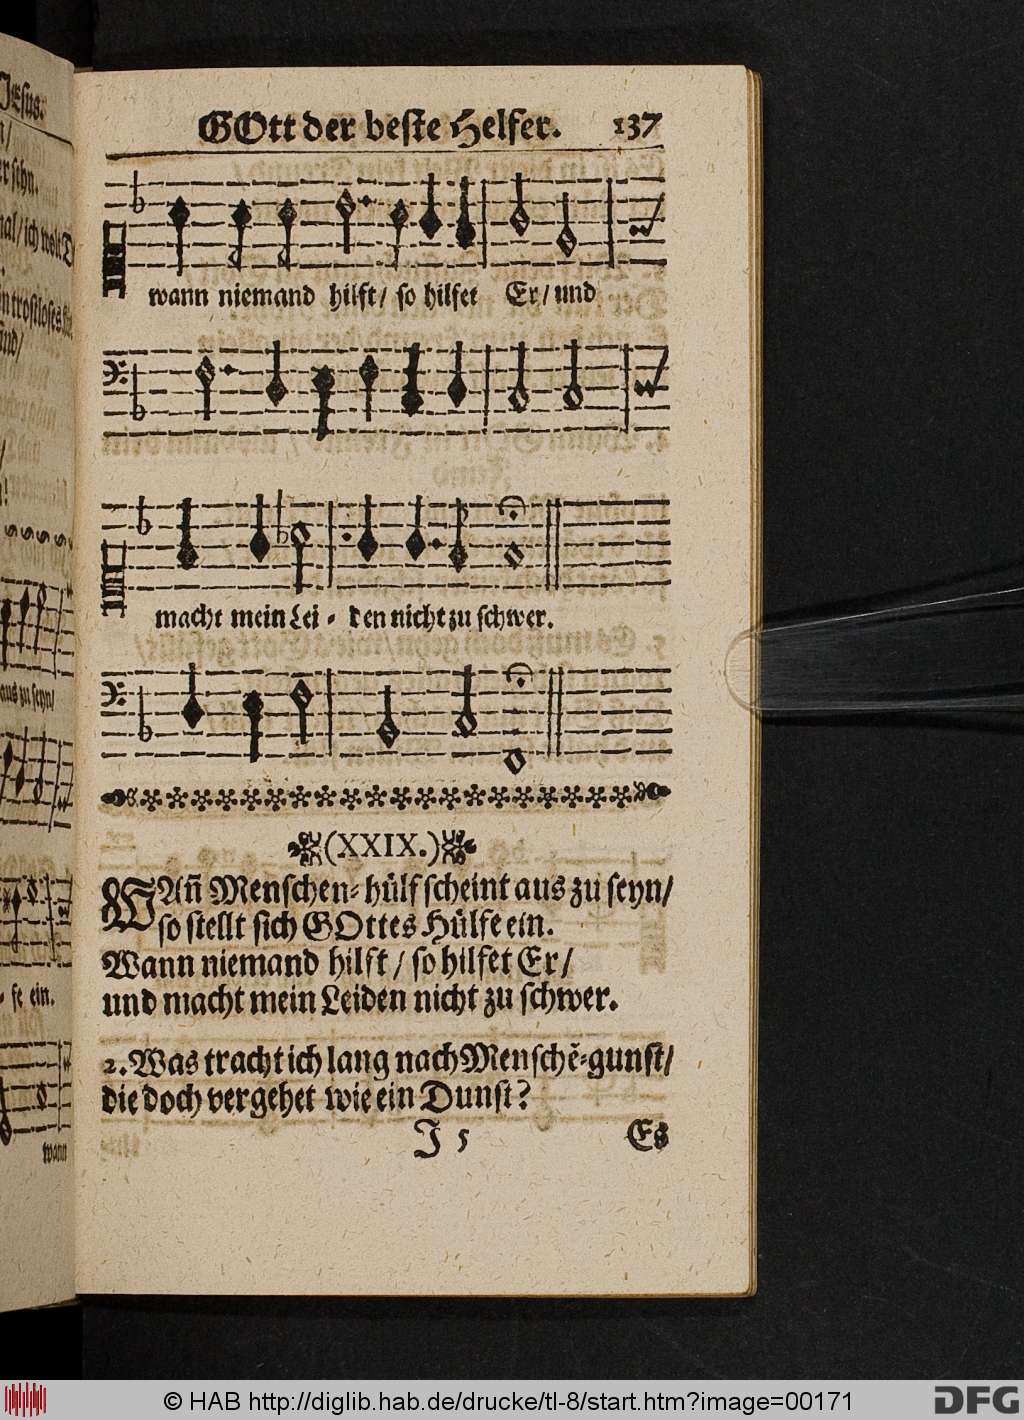 GOtt der beste Helfer. 137
wann niemand hilft/ so hilfet Er/ und
macht mein Lei - den nicht zu schwer.
(XXIX.)
WAñ Menschen-hülf scheint aus zu seyn/
so stellt sich GOttes Hülfe ein.
Wann niemand hilft / so hilfet Er/
und macht mein Leiden nicht zu schwer.
2. Was tracht ich lang nach Menschẽ-gunst/
die doch vergehet wie ein Dunst?
J 5 Es
JEsus.
aus zu seyn/
- fe ein.
wann
© HAB http://diglib.hab.de/drucke/tl-8/start.htm?image=00171
DFG